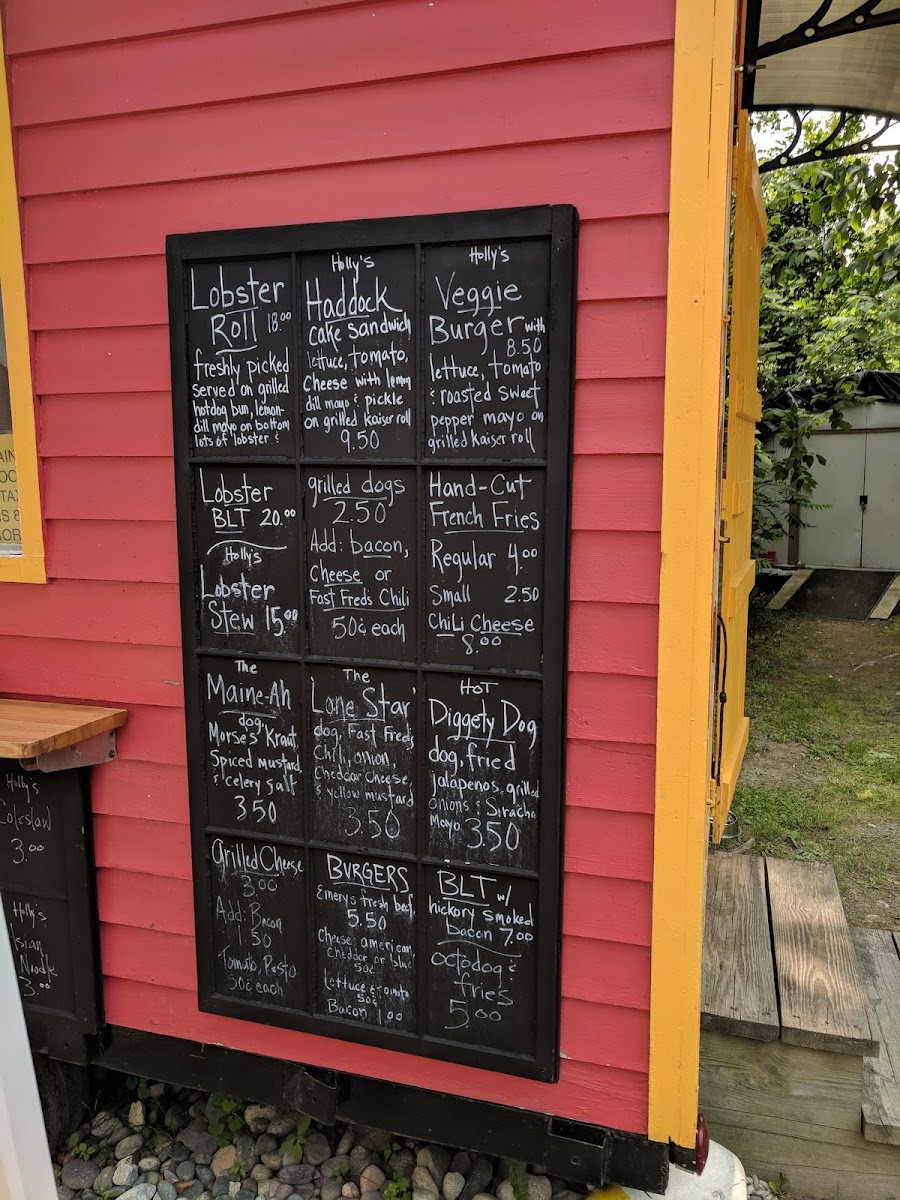 Lobster
Roll 18.00
freshly picked
served on grilled
hotdog bun, lemon-
dill mayo on bottom
lots of lobster &
Holly's
Haddock
cake sandwich
lettuce, tomato,
cheese with lemon
dill mayo & pickle
on grilled kaiser roll
9.50
Holly's
Veggie
Burger with
8.50
lettuce, tomato
& roasted sweet
pepper mayo on
grilled kaiser roll
Lobster
BLT 20.00
Holly's
Lobster
Stew 15.00
grilled dogs
2.50
Add: bacon,
Cheese or
Fast Fred's Chili
50¢ each
Hand-Cut
French Fries
Regular 4.00
Small 2.50
Chili Cheese
8.00
The
Maine-Ah
dog,
Morse's Kraut
Spiced mustard
& celery salt
3.50
The
Lone Star
dog, Fast Fred's
Chili, onion,
Cheddar cheese,
& yellow mustard
3.50
HOT
Diggety Dog
dog, fried
jalapenos, grilled
onions & Siracha
Mayo 3.50
Grilled Cheese
3.00
Add: Bacon
1.50
Tomato, Pesto
50¢ each
BURGERS
Emery's fresh beef
5.50
Cheese: american
Cheddar or blue
50¢
Lettuce & tomato
50¢
Bacon 1.00
BLT w/
hickory smoked
bacon 7.00
octodog &
fries
5.00
Holly's
Coleslaw
3.00
Holly's
Asian
Noodle
3.00